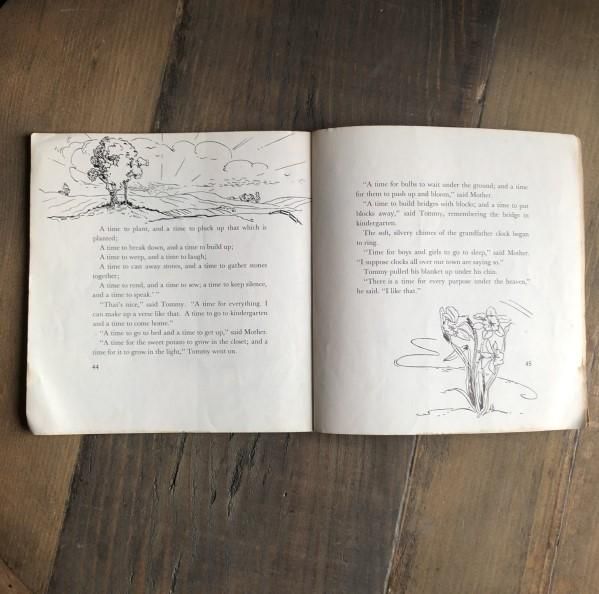 A time to plant, and a time to pluck up that which is
planted;
A time to break down, and a time to build up;
A time to weep, and a time to laugh;
A time to cast away stones, and a time to gather stones
together;
A time to rend, and a time to sew; a time to keep silence,
and a time to speak.'"
"That's nice," said Tommy. "A time for everything. I
can make up a verse like that. A time to go to kindergarten
and a time to come home."
"A time to go to bed and a time to get up," said Mother.
"A time for the sweet potato to grow in the closet; and a
time for it to grow in the light," Tommy went on.
44
"A time for bulbs to wait under the ground; and a time
for them to push up and bloom," said Mother.
"A time to build bridges with blocks; and a time to put
blocks away," said Tommy, remembering the bridge in
kindergarten.
The soft, silvery chimes of the grandfather clock began
to ring.
"Time for boys and girls to go to sleep," said Mother.
"I suppose clocks all over our town are saying so."
Tommy pulled his blanket up under his chin.
"There is a time for every purpose under the heaven,"
he said. "I like that."
45